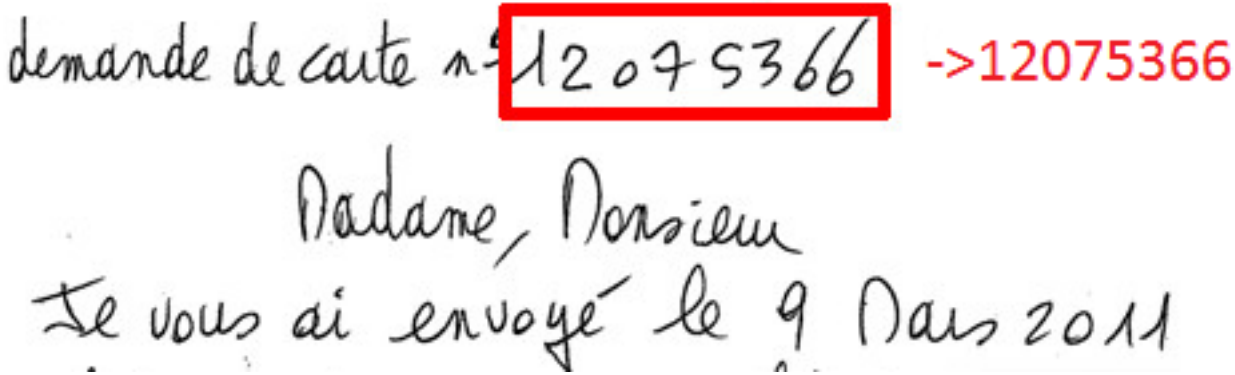 demande de carte n° 12075366 ->12075366
Madame, Monsieur
Je vous ai envoyé le 9 Mars 2011